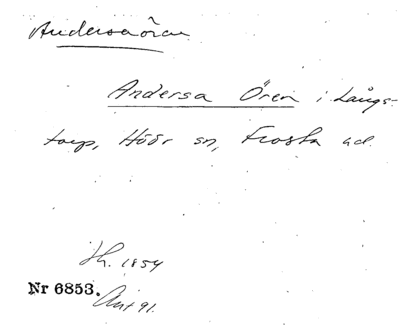 Andersaören
Andersa Ören i Långs-
torp, Höör sn, Frosta hd.
Jh. 1854
Nr 6853.
Ant 91.